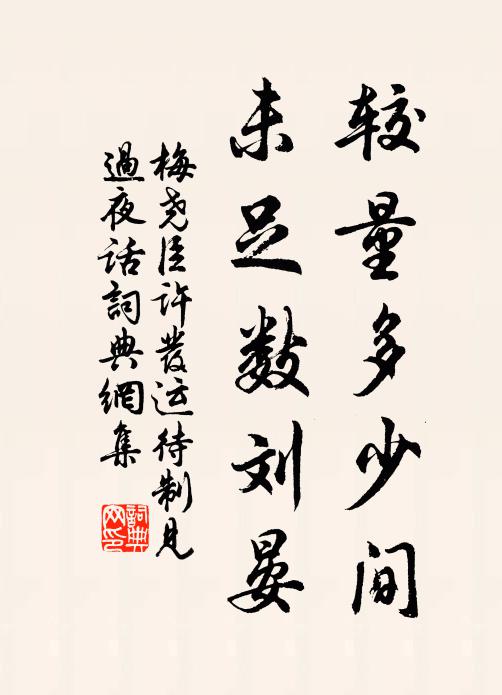 较量多少间
未足数刘晏
梅尧臣许发运待制见
過夜话詞典網集
詞典网印